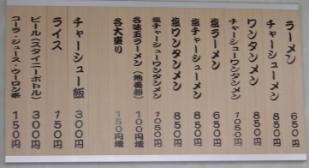 ラーメン 650円
チャーシューメン 850円
ワンタンメン 850円
チャーシューワンタンメン 1050円
塩ラーメン 650円
塩チャーシューメン 850円
塩ワンタンメン 850円
塩チャーシューワンタンメン 1050円
各味玉ラーメン 100円増
各大盛り 150円増
チャーシュー飯 300円
ライス 150円
ビール(スタイニーボトル) 300円
コーラ・ジュース・ウーロン茶 150円